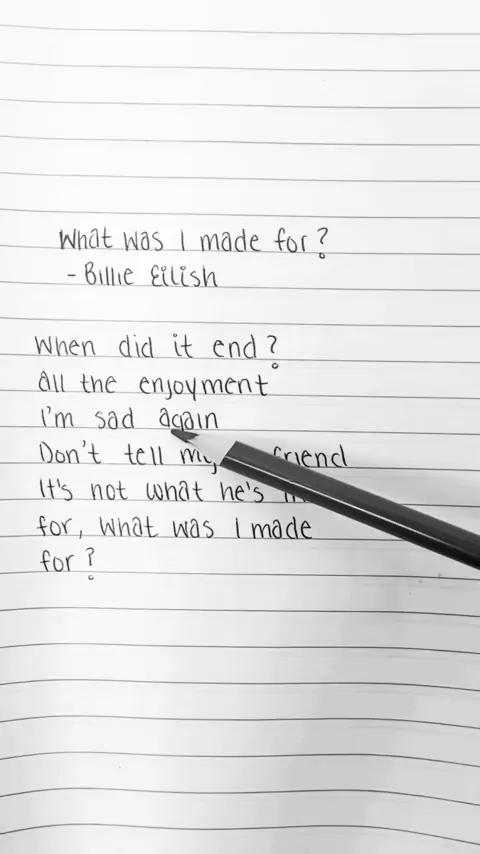 What was I made for?
- Billie Eilish
When did it end?
All the enjoyment
I'm sad again
Don't tell my friend
It's not what he's
for, What was I made
for?